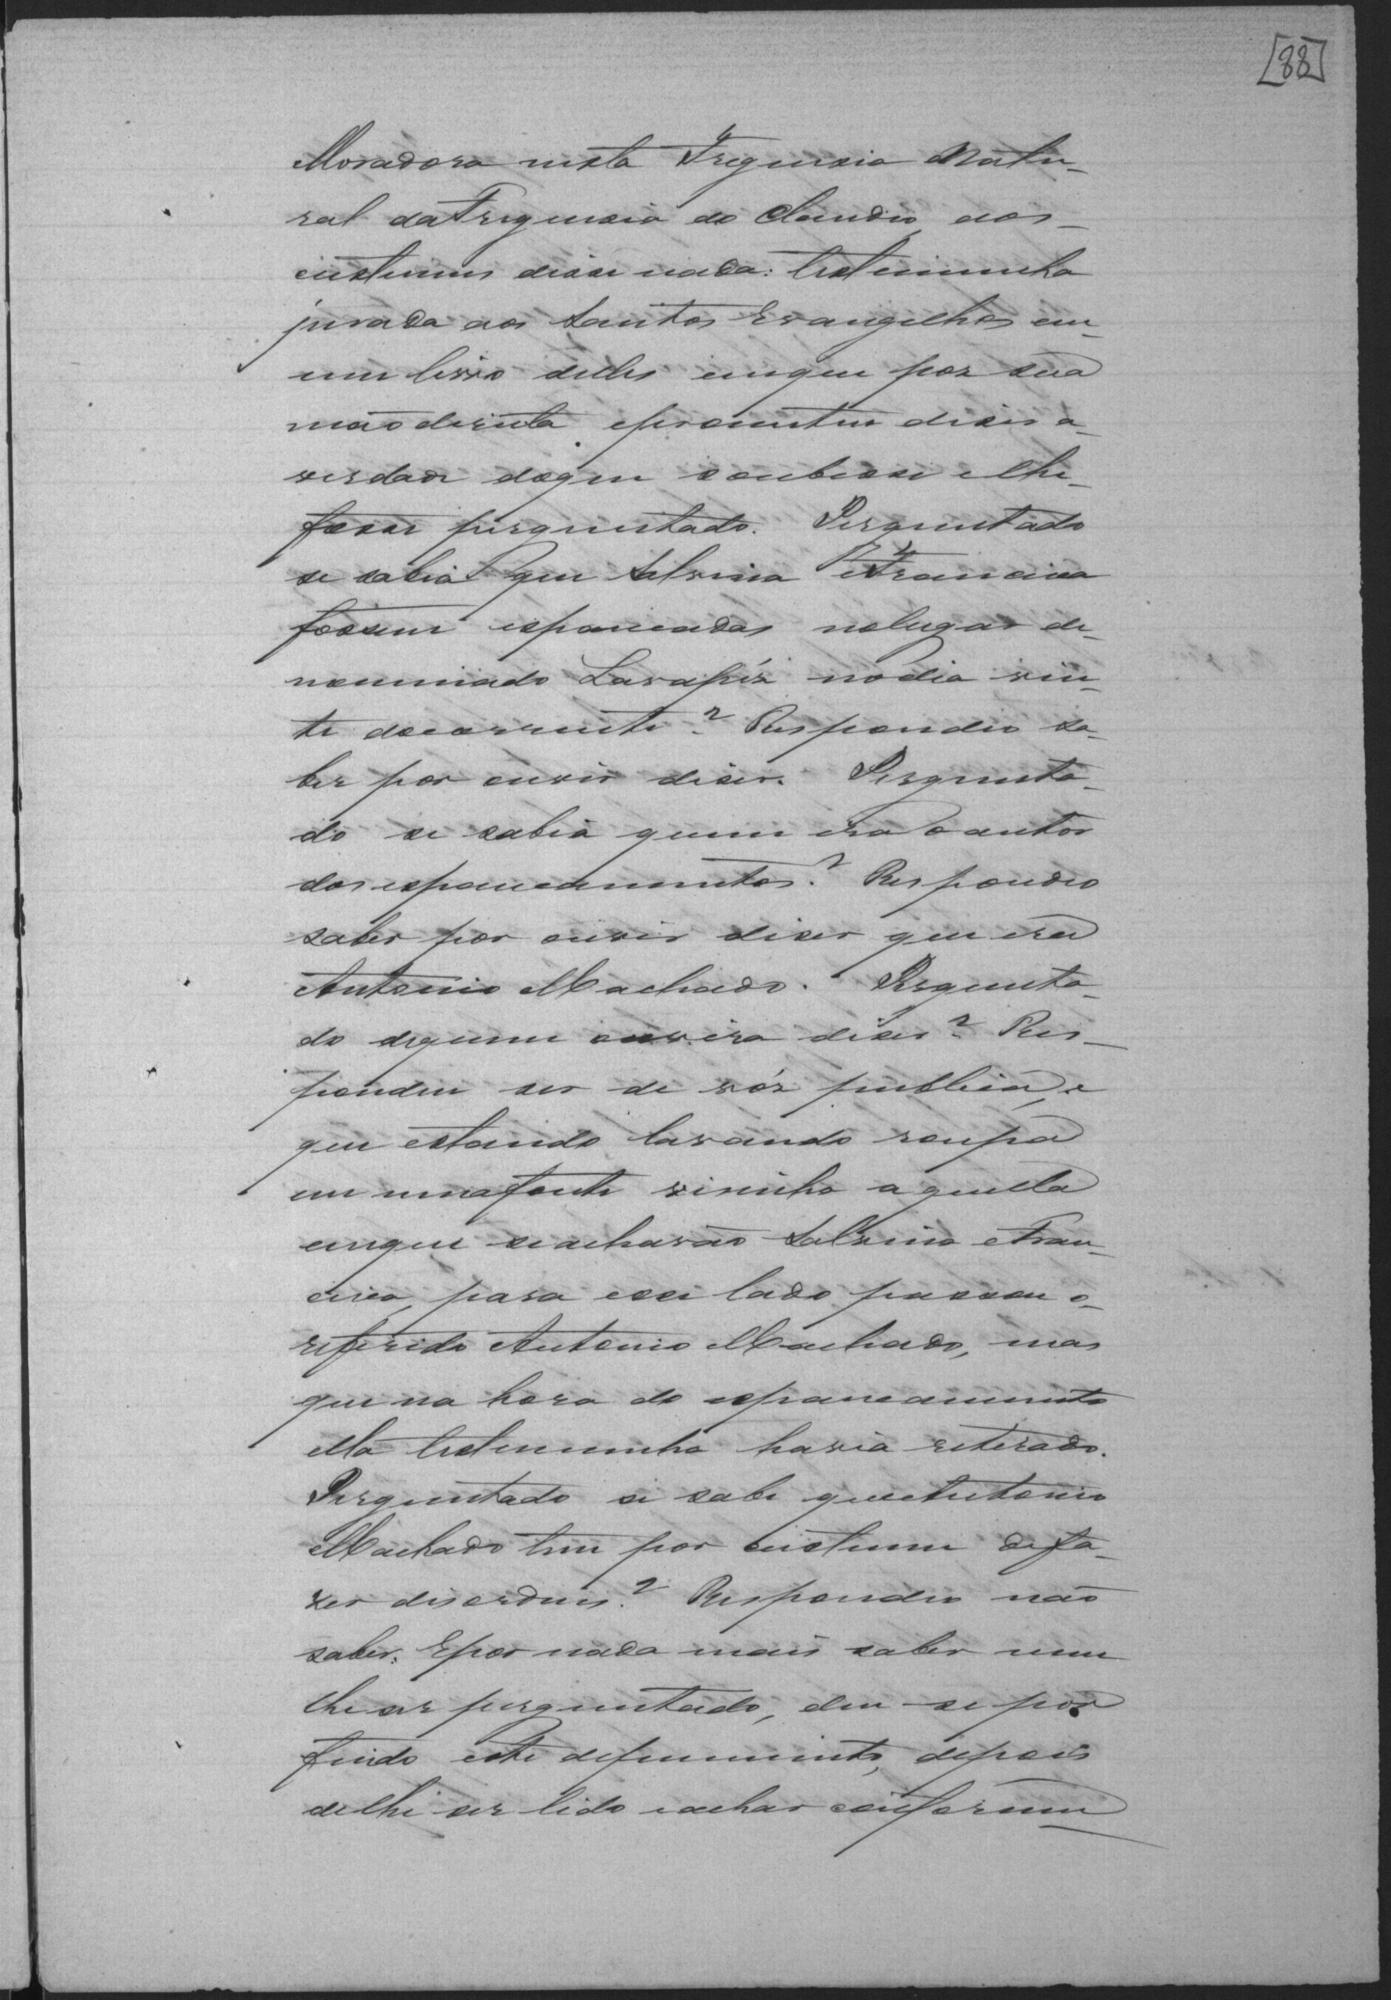 [88]
Moradora nesta Freguesia Natu-
ral da Freguesia do Claudio, aos-
custumes disse nada: testimunha
jurada aos Santos Evangelhos em-
um livro delles emque pos sua
mão dereita eprometteu diser a-
verdade doque soubesse elhe-
fosse perguntado. Perguntado
se sabia que Salvina e Francisca
fossem espancadas nolugar de-
nominado Lavapés nodia vin-
te docorrente? Respondeo sa-
ber por ouvir diser. Pergunta-
do se sabia quem era o autor
dos espancamentos? Respondeo
saber por ouvir diser que era
Antonio Machado. Pergunta-
do dequem ouvira diser? Res-
pondeu ser de vóz publica, e
que estando lavando roupa
em uma fonte visinha aquella
emque seachavão Salvina e Fran-
cisca, para esse lado passou o-
referido Antonio Machado, mas
que na hora do espancamento
ella testemunha havia retirado.
Perguntado se sabe que Antonio
Machado tem por custume defa-
zer disordens? Respondeo não
saber. Epor nada mais saber nem
lhe ser perguntado, deu-se por
findo este depuimento, depois
delhe ser lido eachar conforme